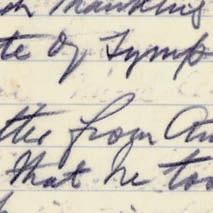 thanking
te of Symp
tter from Au
that he too